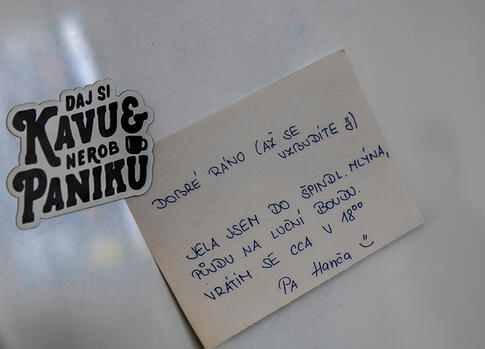 DAJ SI
KAVU &
NEROB
PANIKU
DOBRÉ RÁNO (AŽ SE
VZBUDÍTE :))
JELA JSEM DO ŠPINDL. MLÝNA,
PŮJDU NA LUČNÍ BOUDU.
VRÁTÍM SE CCA V 18⁰⁰
PA Hanča :)